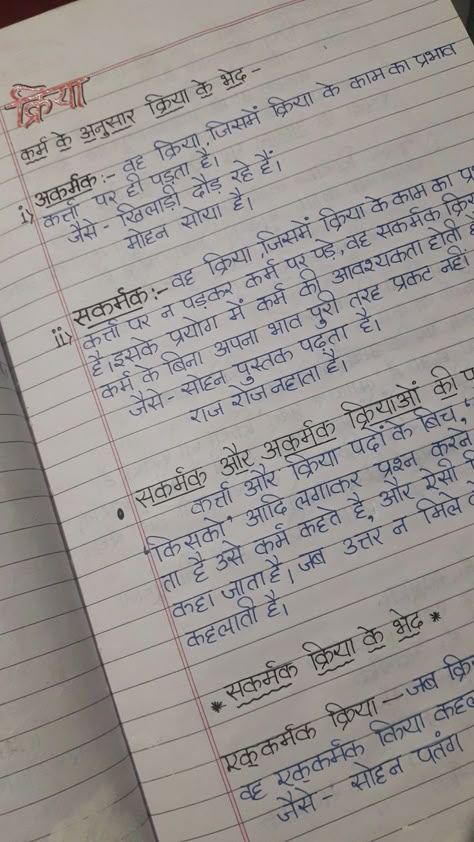 क्रिया
कर्म के अनुसार क्रिया के भेद -
i) अकर्मक:- वह क्रिया, जिसमें क्रिया के काम का प्रभाव
कर्त्ता पर ही पड़ता है।
जैसे - खिलाड़ी दौड़ रहे हैं।
मोहन सोया है।
ii) सकर्मक:- वह क्रिया, जिसमें क्रिया के काम का
कर्त्ता पर न पड़कर कर्म पर पड़े, वह सकर्मक
है। इसके प्रयोग में कर्म की आवश्यकता होती
कर्म के बिना अपना भाव पुरी तरह प्रकट नहीं
जैसे - सोहन पुस्तक पढ़ता है।
राज रोज नहाता है।
• सकर्मक और अकर्मक क्रियाओं की
कर्त्ता और क्रिया पदों के बिच,
किसको' आदि लगाकर प्रश्न करने
ता है उसे कर्म कहते है, और ऐसी
कहा जाता है। जब उत्तर न मिले
कहलाती है।
* सकर्मक क्रिया के भेद *
एककर्मक क्रिया - जब
वह एककर्मक क्रिया
जैसे - सोहन पतंग